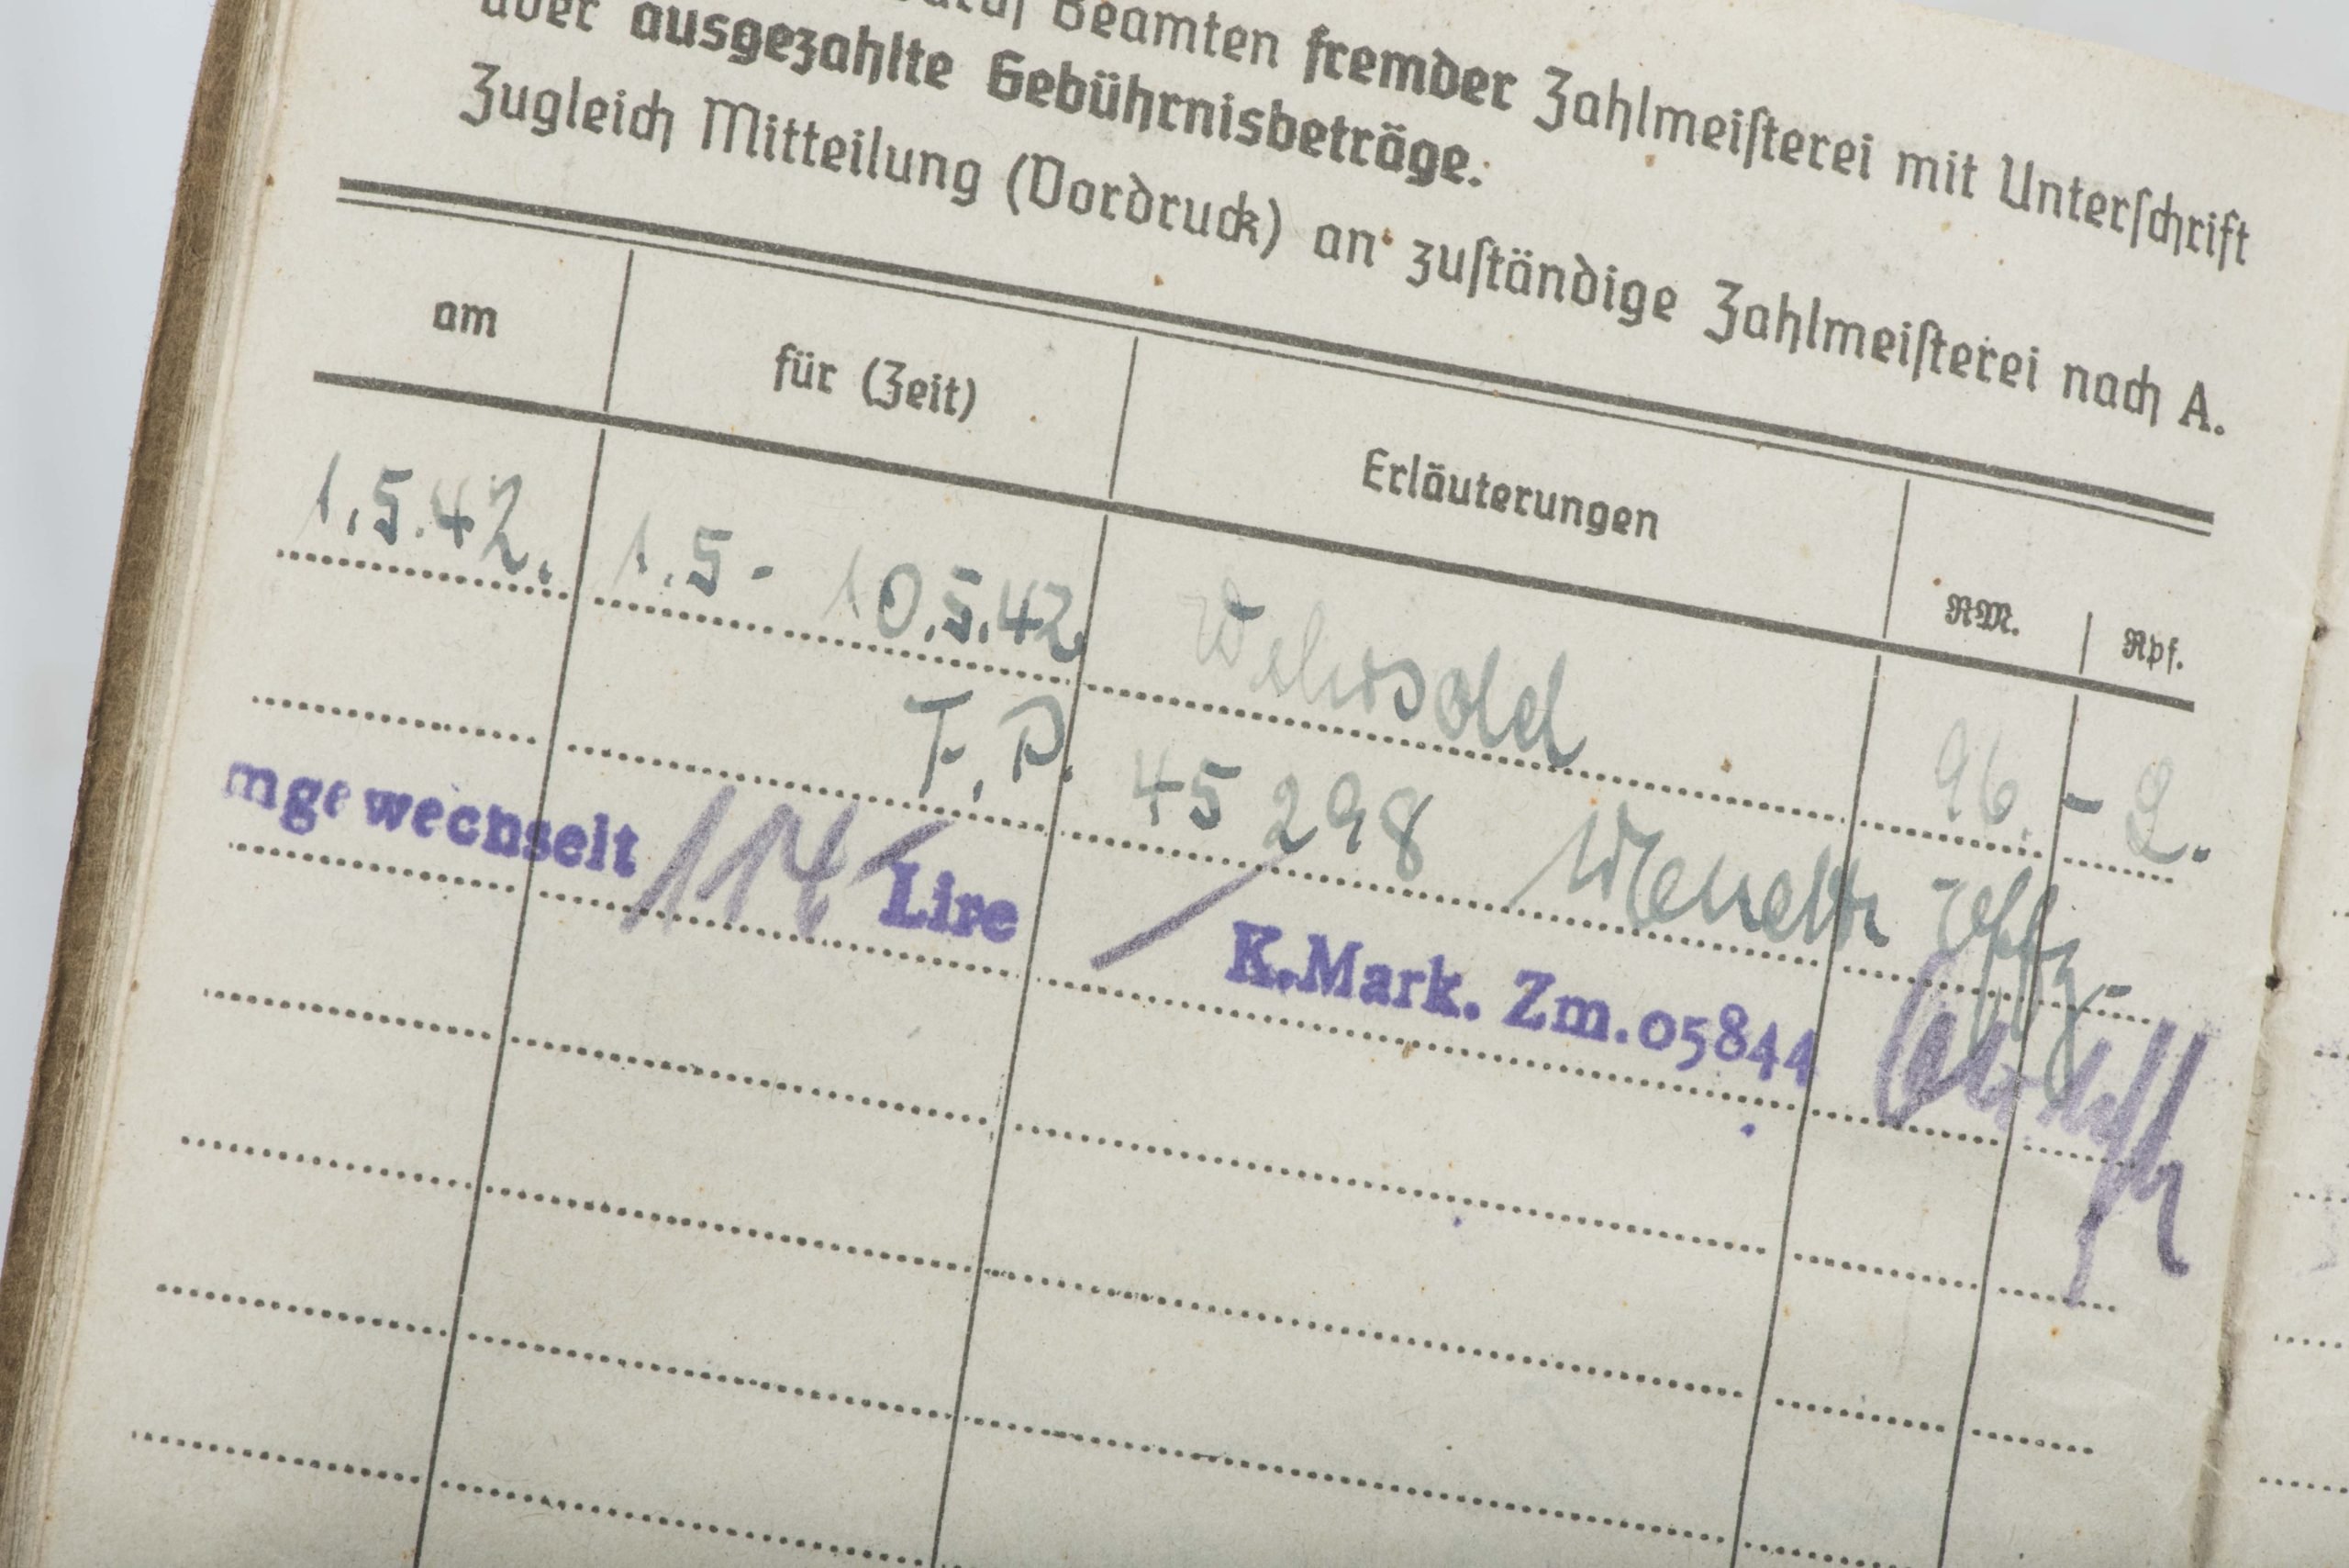 Beamten fremder Zahlmeisterei mit Unterschrift
über ausgezahlte Gebührnisbeträge.
Zugleich Mitteilung (Vordruck) an zuständige Zahlmeisterei nach A.
am für (Zeit) Erläuterungen RM. Rpf.
1.5.42. 1.5 - 10.5.42. Wehrsold 96. - L.
F. P. 45 298
mgewechselt 114 Lire K.Mark. Zm.05844